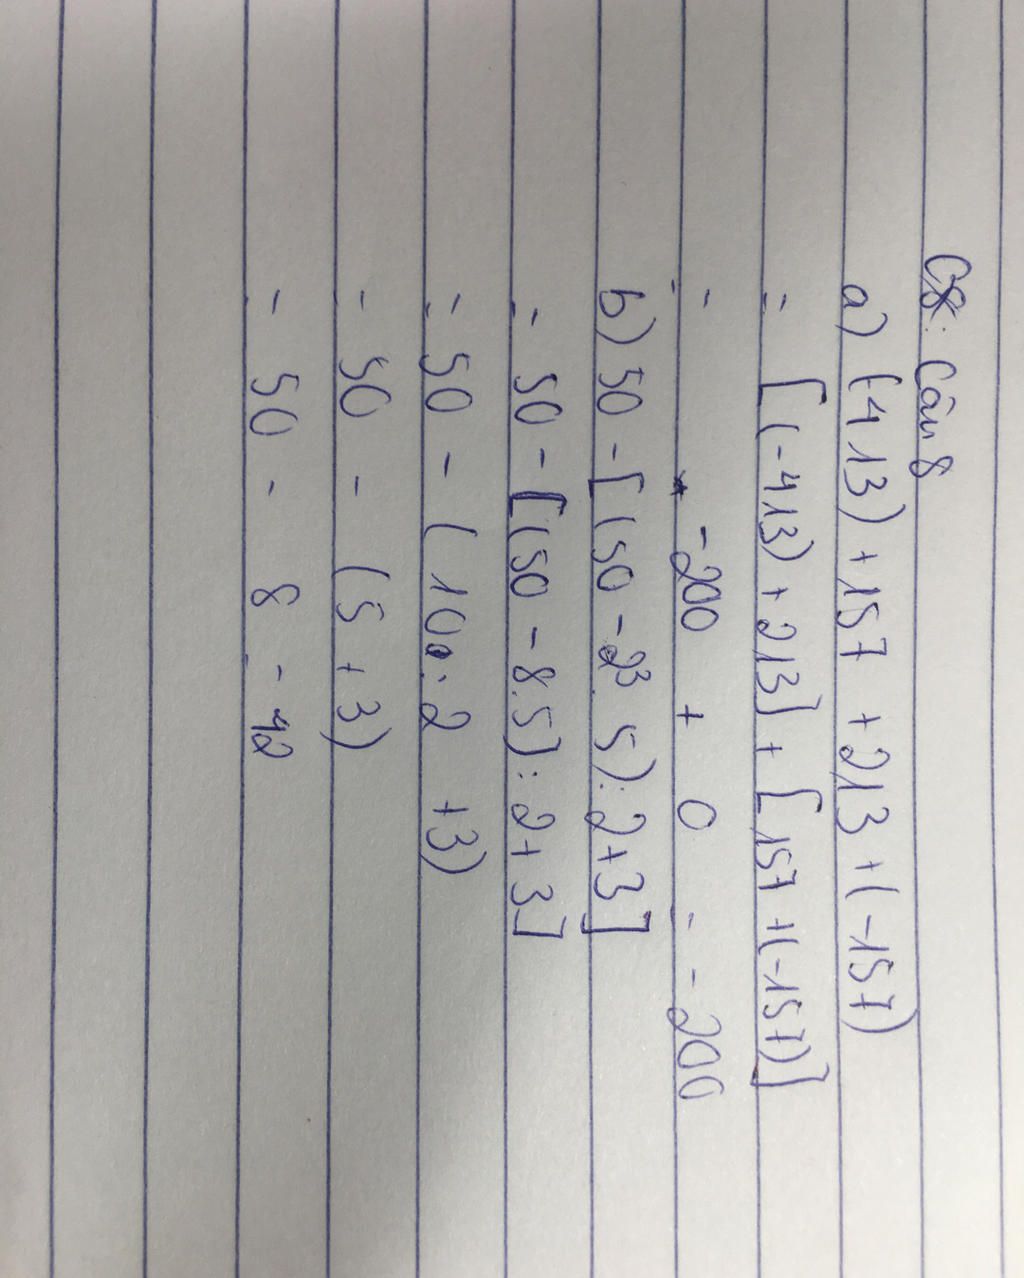 C8: Câu 8
a) (-413) + 157 + 213 + (-157)
= [(-413) + 213] + [157 + (-157)]
= -200 + 0 = -200
b) 50 - [(50 - 2³. 5): 2+3]
= 50 - [(50 - 8.5): 2+3]
= 50 - (10: 2 +3)
= 50 - (5 +3)
= 50 - 8 = 42